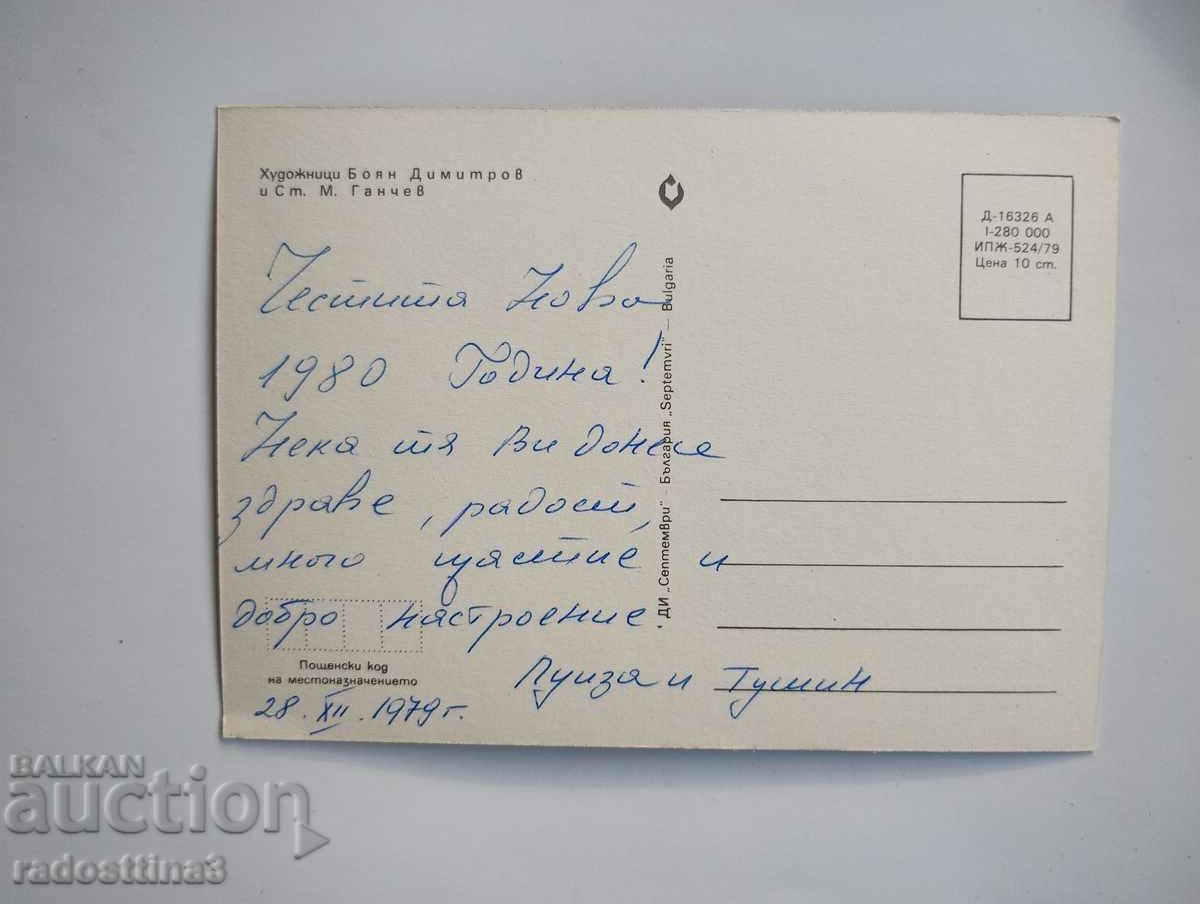 Художници Боян Димитров
и Ст. М. Ганчев
Д-16326 А
I-280 000
ИПЖ-524/79
Цена 10 ст.
Честита Нова
1980 Година!
Нека тя Ви донесе
здраве, радост,
много щастие и
добро настроение.
Луиза и
28. XII. 1979 г.
Пощенски код
на местоназначението
ДИ „Септември" - България „Septemvri" — Bulgaria
BALKAN
auction
radosttina3